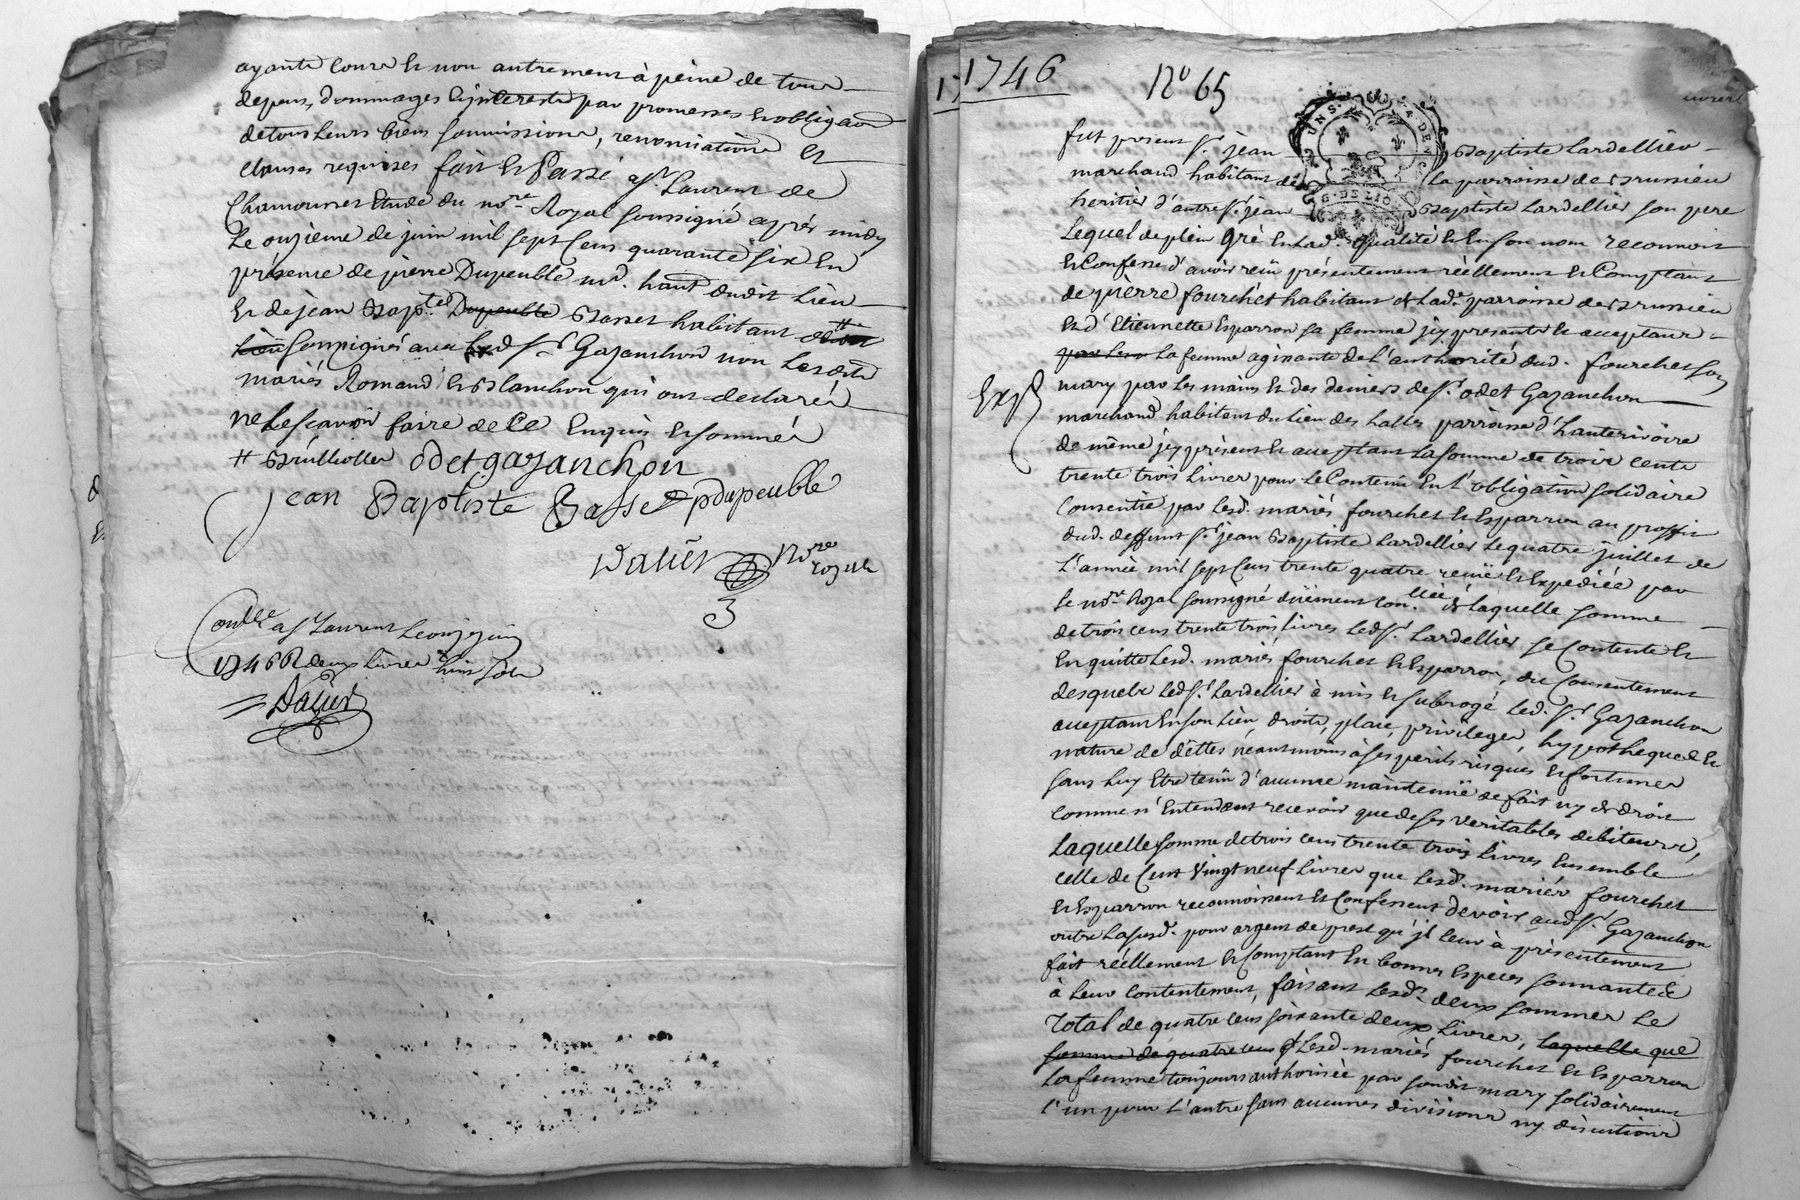 ayants cause et non autrement à peine de tous
depens, dommages & jnterests par promesses & obligaon
de tous leurs biens soumissions, renonciations et
clauses requises fait et Passé a St Laurent de
Chamousset Etude du nore Royal soussigné après midy
Le onzieme de juin mil sept Cens quarante six En
présence de pierre Dupeuble md. hant dudit Lieu
Et de jean Bapte Dupeuble Basset habitant #
Lieu soussignés avec led Sr Gazanchon non Lesdits
mariés Romand et Blanchon qui ont declaré
ne le scavoir faire de Ce Enquis et sommés
# odet gazanchon
jean Baptiste Basset pdupeuble
Dalier Nore
royal
3
Conllé a St Laurent Le onze juin
1746 R deux Livres huit sols
Dalier
1746
No 65
fut present Sr jean Baptiste Lardellier
marchand habitant de La parroisse de Brussieu
heritier d'autre Sr jean Baptiste Lardellier son pere
Lequel de plein gré En Lad. qualité et En son nom reconnoit
et Confesse d'avoir reçu présentement réellement et Comptant
de pierre fourchet habitant de Lad. parroisse de Brussieu
et d'Etiennette Esparron sa femme jcy presents et acceptans
La femme agissante de L'authorité dud. fourchet son
mary par Les mains et des deniers de Sr odet Gazanchon
marchand habitant du Lieu des halles parroisse d'hauterivoire
de même jcy présent et acceptant La somme de trois cents
trente trois Livres pour Le Contenu En L'obligation solidaire
Consentie par Lesd. mariés fourchet et Esparron au proffit
dud. deffunt Sr jean Baptiste Lardellier Le quatre juillet de
L'année mil sept Cens trente quatre reçue et Expediée par
Le nore Royal soussigné düement Conllée de Laquelle somme
de trois cens trente trois Livres Led Sr Lardellier se Contente et
En quitte Lesd. mariés fourchet et Esparron, du Consentement
desquels Led Sr Lardellier à mis et subrogé Led. Sr Gazanchon
acceptant En son Lieu, droits, place, privileges, hypotheques et
nature de dettes néantmoins à ses perils risques et fortunes
sans Luy Etre tenü d'aucune maintenüe de fait ny de droit
Comme n'Entendant recevoir que de ses veritables debiteurs,
Laquelle somme de trois cens trente trois Livres Ensemble
celle de Cent Vingt neuf Livres que Lesd. mariés fourchet
et Esparron reconnoissent et Confessent devoir aud Sr. Gazanchon
outre La susd. pour argent de prest qu'jl leur à présentement
fait réellement et Comptant En bonnes Especes sonnantes
à Leur Contentement, faisant Lesd. deux sommes Le
Total de quatre cens soixante deux Livres, laquelle que
somme de quatre cens Lesd. mariés fourchet et Esparron
La femme toujours authorisée par sondit mary solidairement
L'un pour L'autre sans aucunes divisions ny discutions